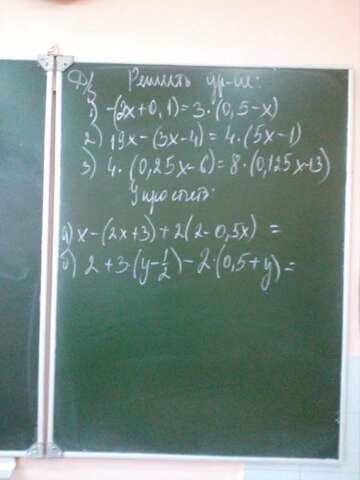 Д/з Решить ур-ие:
1) -(2x+0,1)=3·(0,5-x)
2) 19x-(3x-4)=4·(5x-1)
3) 4·(0,25x-6)=8·(0,125x-13)
Упростить:
а) x-(2x+3)+2(2-0,5x) =
б) 2+3·(y-1/2)-2·(0,5+y)=